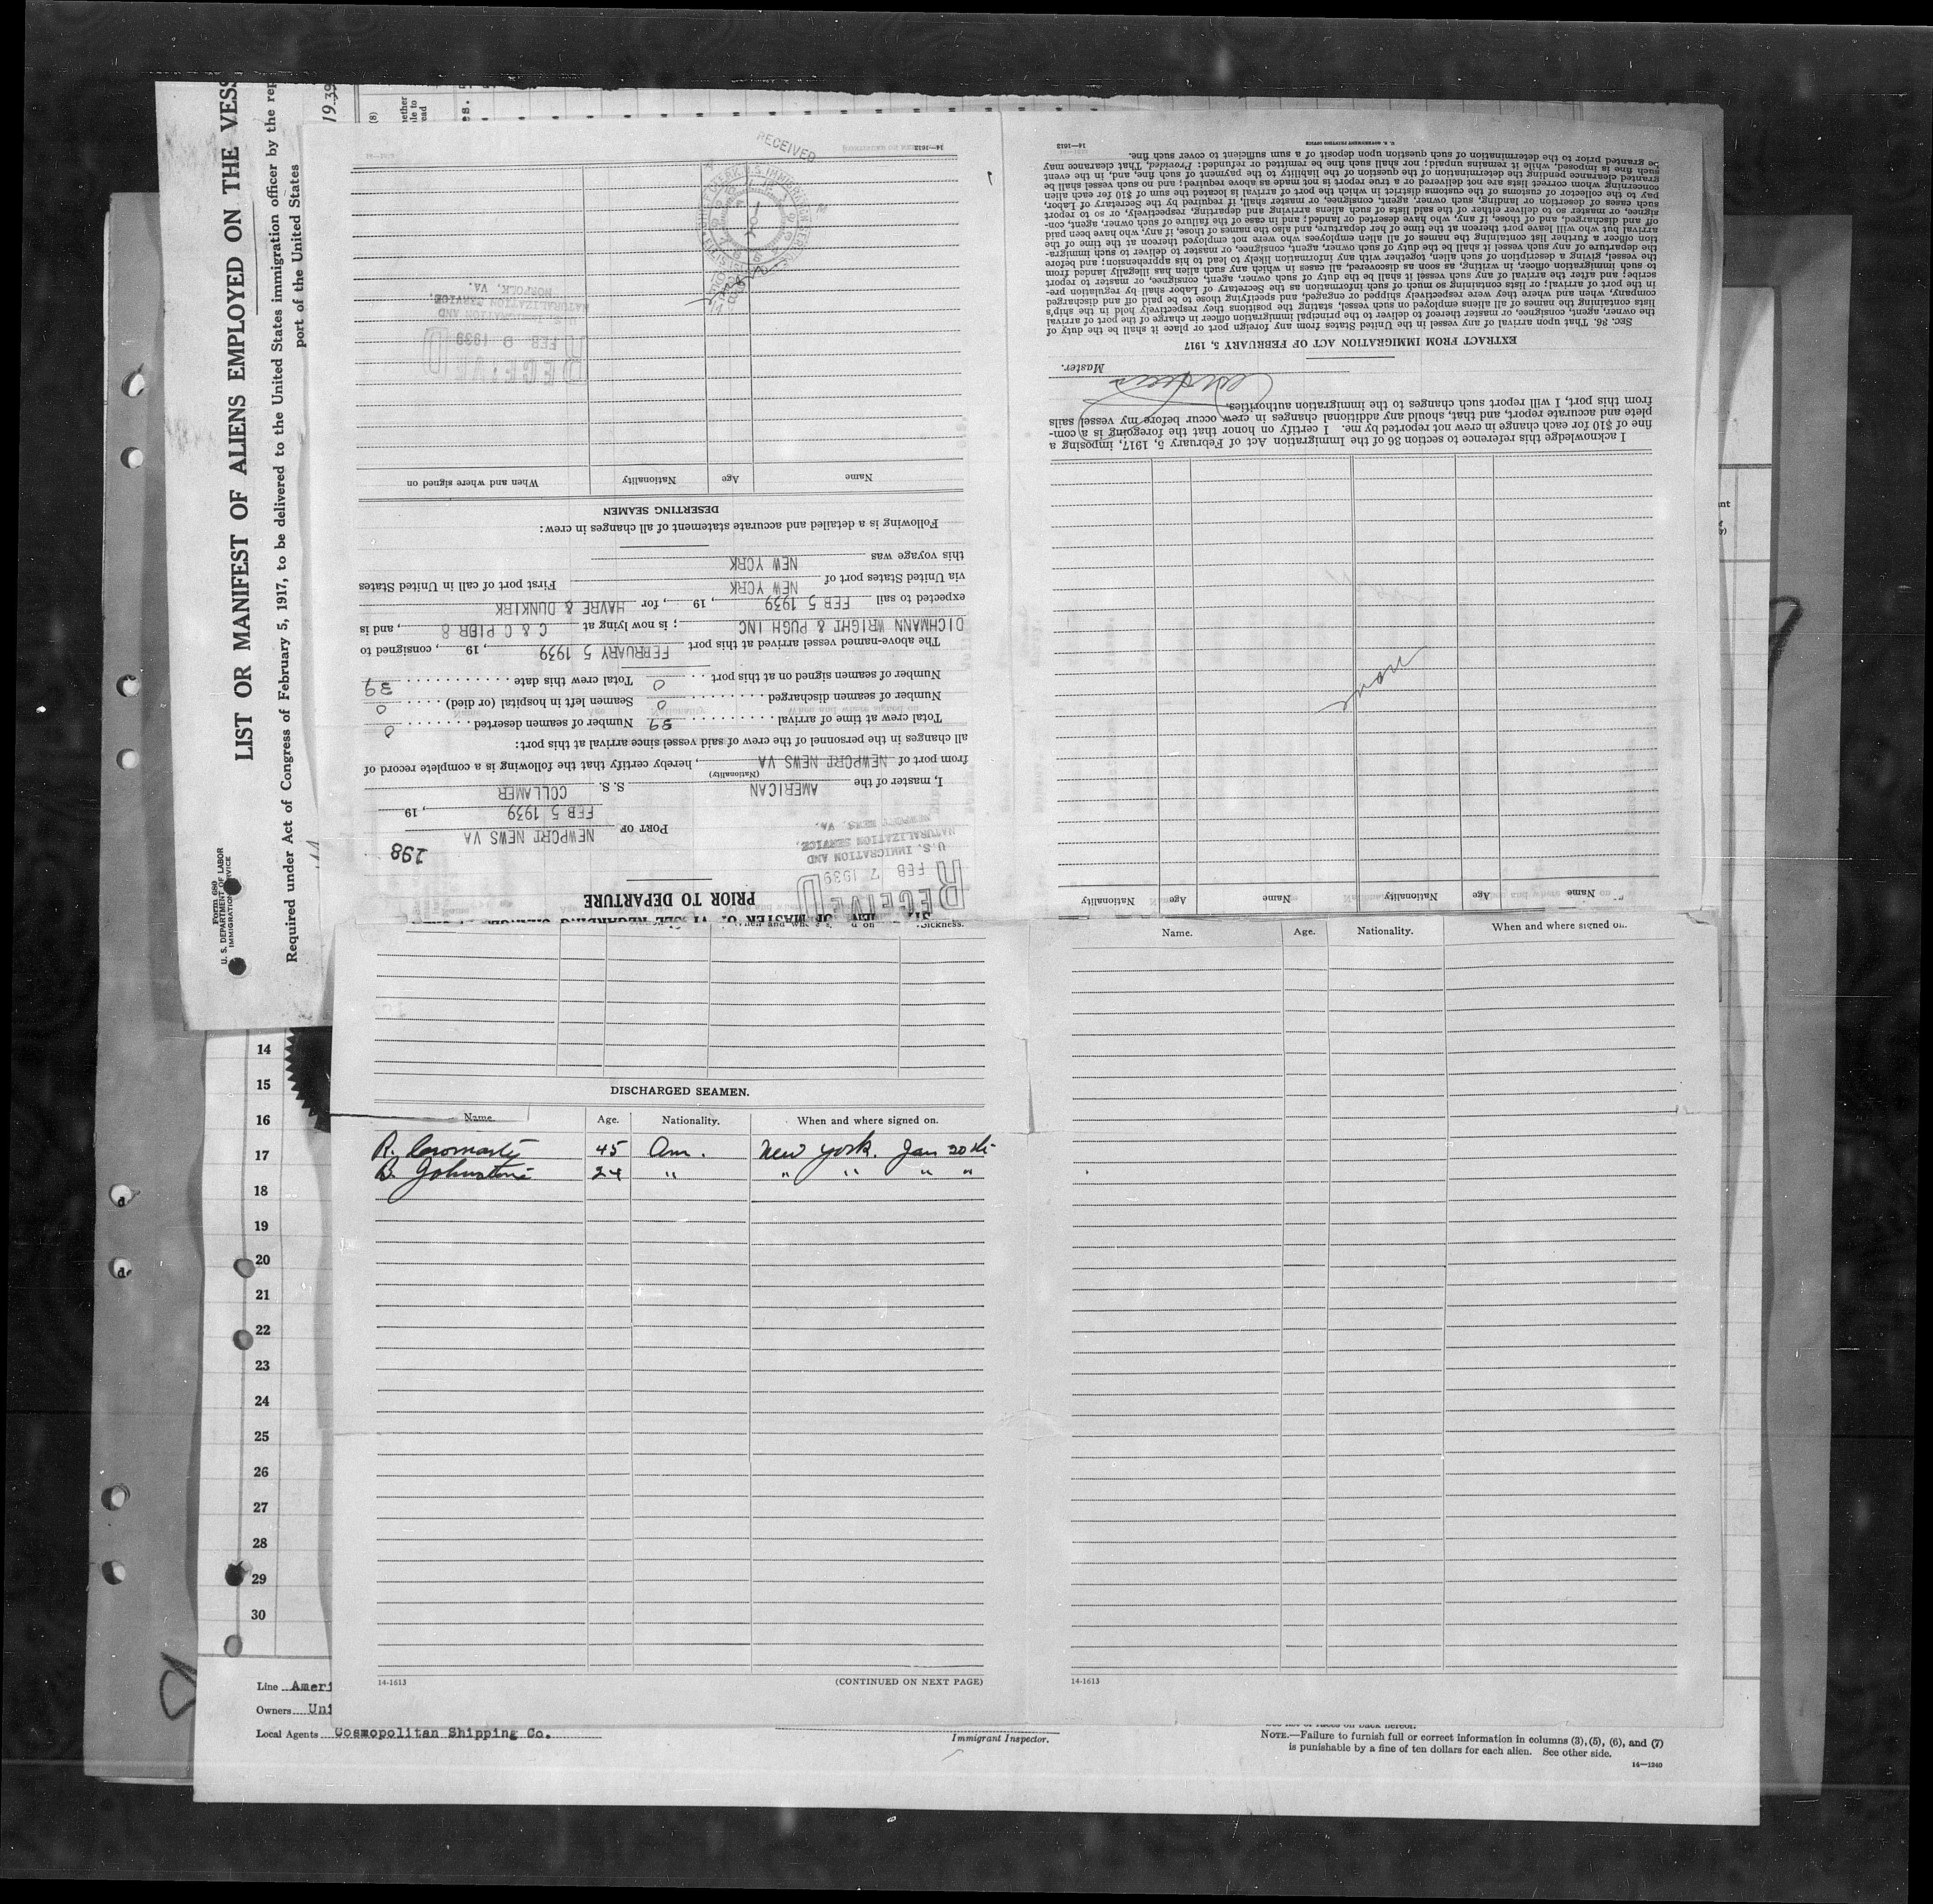 Form 680
U. S. DEPARTMENT OF LABOR
IMMIGRATION SERVICE
LIST OR MANIFEST OF ALIENS EMPLOYED ON THE VESS
Required under Act of Congress of February 5, 1917, to be delivered to the United States immigration officer by the rep
port of the United States
1939
(8)
PRIOR TO DEPARTURE
RECEIVED
FEB 7 1939
U. S. IMMIGRATION AND
NATURALIZATION SERVICE,
NEWPORT NEWS, VA.
298
PORT OF NEWPORT NEWS VA
FEB 5 1939, 19
I, master of the AMERICAN S. S. COLLAMER
(Nationality)
from port of NEWPORT NEWS VA, hereby certify that the following is a complete record of
all changes in the personnel of the crew of said vessel since arrival at this port:
Total crew at time of arrival 39 Number of seamen deserted 0
Number of seamen discharged 0 Seamen left in hospital (or died) 0
Number of seamen signed on at this port 0 Total crew this date 39
The above-named vessel arrived at this port FEBRUARY 5 1939, 19, consigned to
DICHMANN WRIGHT & PUGH INC; is now lying at C & O PIER 8, and is
expected to sail FEB 5 1939, 19, for HAVRE & DUNKIRK
via United States port of NEW YORK First port of call in United States
this voyage was NEW YORK
Following is a detailed and accurate statement of all changes in crew:
DESERTING SEAMEN
Name Age Nationality When and where signed on
RECEIVED
FEB 9 1939
U. S. IMMIGRATION AND
NATURALIZATION SERVICE,
NORFOLK, VA.
RECEIVED
14—1613
Name Age Nationality Name Age Nationality
none
I acknowledge this reference to section 36 of the Immigration Act of February 5, 1917, imposing a
fine of $10 for each change in crew not reported by me. I certify on honor that the foregoing is a com-
plete and accurate report, and that, should any additional changes in crew occur before my vessel sails
from this port, I will report such changes to the immigration authorities.
Master.
EXTRACT FROM IMMIGRATION ACT OF FEBRUARY 5, 1917
SEC. 36. That upon arrival of any vessel in the United States from any foreign port or place it shall be the duty of
the owner, agent, consignee, or master thereof to deliver to the principal immigration officer in charge of the port of arrival
lists containing the names of all aliens employed on such vessel, stating the positions they respectively hold in the ship's
company, when and where they were respectively shipped or engaged, and specifying those to be paid off and discharged
in the port of arrival; or lists containing so much of such information as the Secretary of Labor shall by regulation pre-
scribe; and after the arrival of any such vessel it shall be the duty of such owner, agent, consignee, or master to report
to such immigration officer, in writing, as soon as discovered, all cases in which any such alien has illegally landed from
the vessel, giving a description of such alien, together with any information likely to lead to his apprehension; and before
the departure of any such vessel it shall be the duty of such owner, agent, consignee, or master to deliver to such immigra-
tion officer a further list containing the names of all alien employees who were not employed thereon at the time of the
arrival but who will leave port thereon at the time of her departure, and also the names of those, if any, who have been paid
off and discharged, and of those, if any, who have deserted or landed; and in case of the failure of such owner, agent, con-
signee, or master so to deliver either of the said lists of such aliens arriving and departing, respectively, or so to report
such cases of desertion or landing, such owner, agent, consignee, or master shall, if required by the Secretary of Labor,
pay to the collector of customs of the customs district in which the port of arrival is located the sum of $10 for each alien
concerning whom correct lists are not delivered or a true report is not made as above required; and no such vessel shall be
granted clearance pending the determination of the question of the liability to the payment of such fine, and, in the event
such fine is imposed, while it remains unpaid; nor shall such fine be remitted or refunded: Provided, That clearance may
be granted prior to the determination of such question upon deposit of a sum sufficient to cover such fine.
U. S. GOVERNMENT PRINTING OFFICE 14—1613
DISCHARGED SEAMEN.
Name. Age. Nationality. When and where signed on.
R. Cromarty 45 Am. New York. Jan 20th
B. Johnstone 24 " " " " "
14-1613 (CONTINUED ON NEXT PAGE)
Name. Age. Nationality. When and where signed on.
14-1613
14
15
16
17
18
19
20
21
22
23
24
25
26
27
28
29
30
Line Ameri
Owners Uni
Local Agents Cosmopolitan Shipping Co.
Immigrant Inspector.
NOTE.—Failure to furnish full or correct information in columns (3), (5), (6), and (7)
is punishable by a fine of ten dollars for each alien. See other side.
14—1240